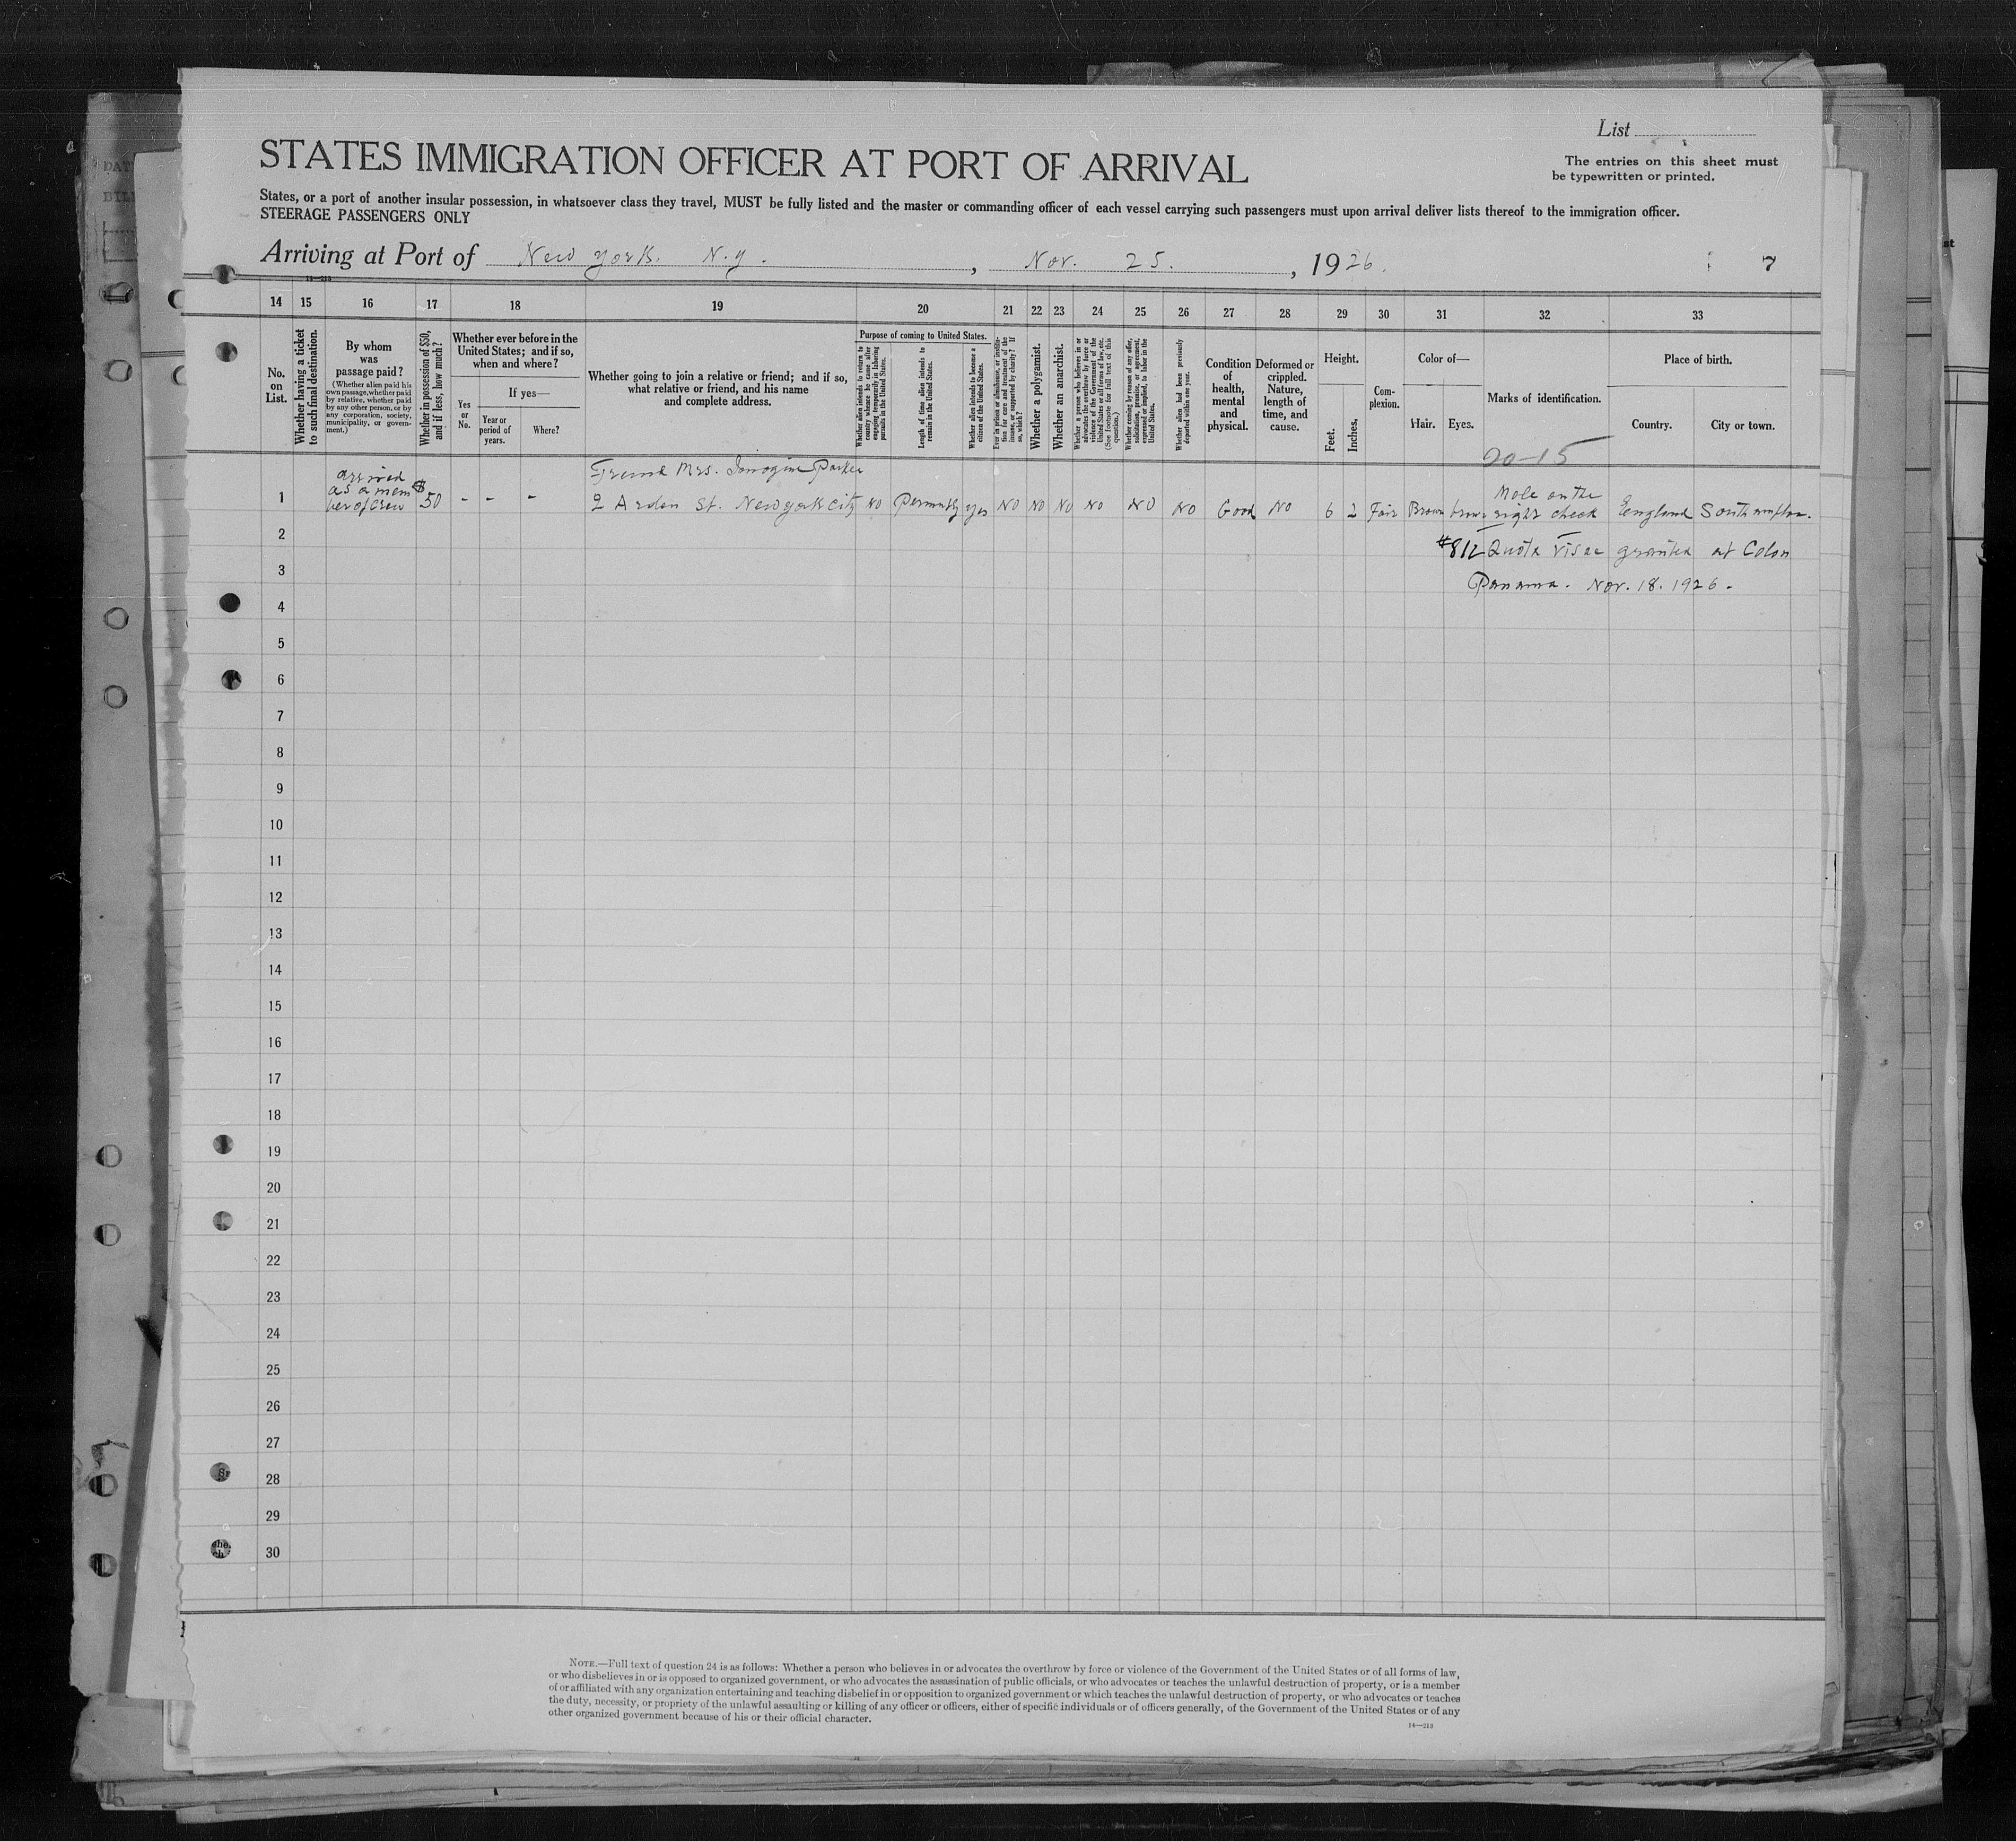 List
The entries on this sheet must
be typewritten or printed.
STATES IMMIGRATION OFFICER AT PORT OF ARRIVAL
States, or a port of another insular possession, in whatsoever class they travel, MUST be fully listed and the master or commanding officer of each vessel carrying such passengers must upon arrival deliver lists thereof to the immigration officer.
STEERAGE PASSENGERS ONLY
Arriving at Port of New York. N.Y. , Nov. 25. , 1926.
14 15 16 17 18 19 20 21 22 23 24 25 26 27 28 29 30 31 32 33
No.
on
List.
Whether having a ticket
to such final destination.
By whom
was
passage paid?
(Whether alien paid his
own passage, whether paid
by relative, whether paid
by any other person, or by
any corporation, society,
municipality, or govern-
ment.)
Whether in possession of $50,
and if less, how much?
Whether ever before in the
United States; and if so,
when and where?
Yes
or
No.
If yes—
Year or
period of
years.
Where?
Whether going to join a relative or friend; and if so,
what relative or friend, and his name
and complete address.
Purpose of coming to United States.
Whether alien intends to return to
country whence he came after
engaging temporarily in laboring
pursuits in the United States.
Length of time alien intends to
remain in the United States.
Whether alien intends to become a
citizen of the United States.
Ever in prison or almshouse, or institu-
tion for care and treatment of the
insane, or supported by charity? If
so, which?
Whether a polygamist.
Whether an anarchist.
Whether a person who believes in or
advocates the overthrow by force or
violence of the Government of the
United States or all forms of law, etc.
(See footnote for full text of this
question.)
Whether coming by reason of any offer,
solicitation, promise, or agreement,
expressed or implied, to labor in the
United States.
Whether alien had been previously
deported within one year.
Condition
of
health,
mental
and
physical.
Deformed or
crippled.
Nature,
length of
time, and
cause.
Height.
Feet.
Inches.
Com-
plexion.
Color of—
Hair. Eyes.
Marks of identification.
Place of birth.
Country. City or town.
20-15
arrived
as a mem
ber of crew
Friend Mrs. Imogine Parker
1 $50 - - - 2 Arden St. New York City No Permntly yes No No No No No No Good No 6 2 Fair Brown brown
Mole on the
right cheek England Southampton.
2 #812 Quota Visae granted at Colon
3 Panama. Nov. 18. 1926.
4
5
6
7
8
9
10
11
12
13
14
15
16
17
18
19
20
21
22
23
24
25
26
27
28
29
30
NOTE.—Full text of question 24 is as follows: Whether a person who believes in or advocates the overthrow by force or violence of the Government of the United States or of all forms of law,
or who disbelieves in or is opposed to organized government, or who advocates the assassination of public officials, or who advocates or teaches the unlawful destruction of property, or is a member
of or affiliated with any organization entertaining and teaching disbelief in or opposition to organized government or which teaches the unlawful destruction of property, or who advocates or teaches
the duty, necessity, or propriety of the unlawful assaulting or killing of any officer or officers, either of specific individuals or of officers generally, of the Government of the United States or of any
other organized government because of his or their official character.
14—213